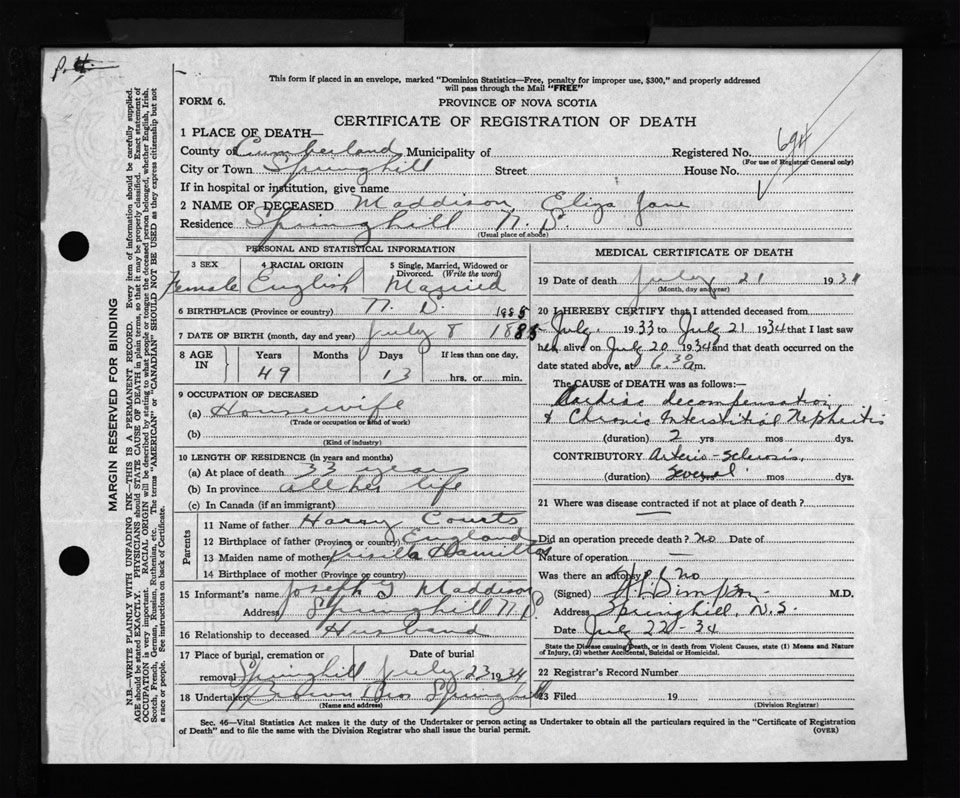 This form if placed in an envelope, marked "Dominion Statistics—Free, penalty for improper use, $300," and properly addressed
will pass through the Mail "FREE"
FORM 6.
PROVINCE OF NOVA SCOTIA
CERTIFICATE OF REGISTRATION OF DEATH
1 PLACE OF DEATH—
County of Cumberland Municipality of Registered No. 694
(For use of Registrar General only)
City or Town Springhill Street House No.
If in hospital or institution, give name
2 NAME OF DECEASED Maddison, Eliza Jane
Residence Springhill N.S.
(Usual place of abode)
PERSONAL AND STATISTICAL INFORMATION
3 SEX 4 RACIAL ORIGIN 5 Single, Married, Widowed or
Divorced. (Write the word)
Female English Married
6 BIRTHPLACE (Province or country) N.S. 1885
7 DATE OF BIRTH (month, day and year) July 8 1885
8 AGE IN Years Months Days If less than one day,
49 13 hrs. or min.
9 OCCUPATION OF DECEASED
(a) Housewife
(Trade or occupation or kind of work)
(b)
(Kind of industry)
10 LENGTH OF RESIDENCE (in years and months)
(a) At place of death 33 years
(b) In province all her life
(c) In Canada (if an immigrant)
Parents
11 Name of father Harry Courts
12 Birthplace of father (Province or country) England
13 Maiden name of mother Prisilla Hamilton
14 Birthplace of mother (Province or country)
15 Informant's name Joseph G Maddison
Address Springhill N.S.
16 Relationship to deceased Husband
17 Place of burial, cremation or removal Date of burial
Springhill July 23 1934
18 Undertaker Brown Bros Springhill
(Name and address)
MEDICAL CERTIFICATE OF DEATH
19 Date of death July 21 193
(Month, day and year)
20 I HEREBY CERTIFY that I attended deceased from
July 1933 to July 21 1934 that I last saw
her alive on July 20 1934 and that death occurred on the
date stated above, at 6.30 a m.
The CAUSE OF DEATH was as follows:
Cardiac decompensation
& Chronic Interstitial Nephritis
(duration) 2 yrs mos dys.
CONTRIBUTORY Arterio-sclerosis
(duration) Several yrs mos dys.
21 Where was disease contracted if not at place of death?
Did an operation precede death? no Date of
Nature of operation —
Was there an autopsy? no
(Signed) Simpson M.D.
Address Springhill, N.S.
Date July 22 - 34
State the Disease causing Death, or in death from Violent Causes, state (1) Means and Nature
of Injury, (2) whether Accidental, Suicidal or Homicidal.
22 Registrar's Record Number
23 Filed 19
(Division Registrar)
Sec. 46—Vital Statistics Act makes it the duty of the Undertaker or person acting as Undertaker to obtain all the particulars required in the "Certificate of Registration
of Death" and to file the same with the Division Registrar who shall issue the burial permit.
(OVER)
MARGIN RESERVED FOR BINDING
N.B.—WRITE PLAINLY WITH UNFADING INK—THIS IS A PERMANENT RECORD. Every item of information should be carefully supplied.
AGE should be stated EXACTLY. PHYSICIANS should STATE CAUSE OF DEATH in plain terms, so that it may be properly classified. Exact statement of
OCCUPATION is very important. RACIAL ORIGIN will be described by stating to what people or tongue the deceased person belonged, whether English, Irish,
Scotch, French, German, Russian, Ruthenian, etc. The terms "AMERICAN" or "CANADIAN" SHOULD NOT BE USED as they express citizenship but not
a race or people. See instructions on back of Certificate.